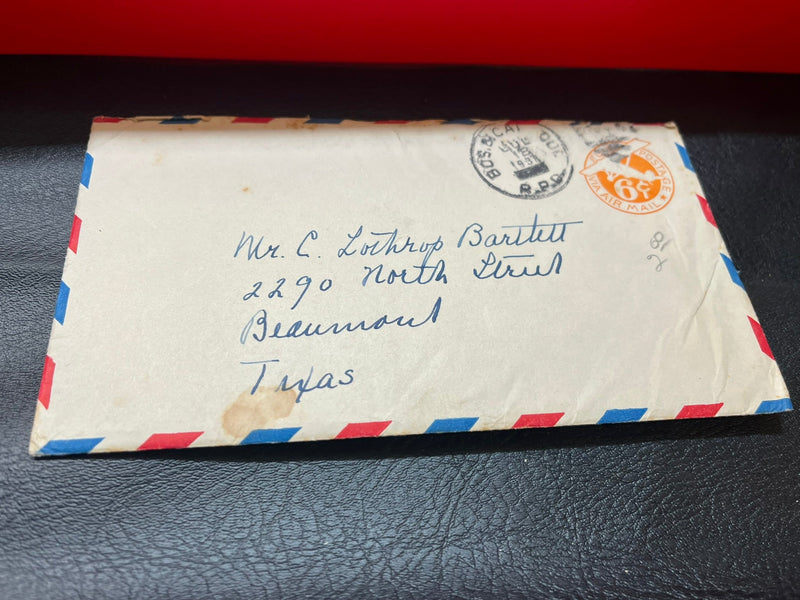 BOS. & CA
R.P.O.
POSTAGE
6¢
VIA AIR MAIL
Mr. C. Lothrop Bartlett
2290 North Street
Beaumont
Texas